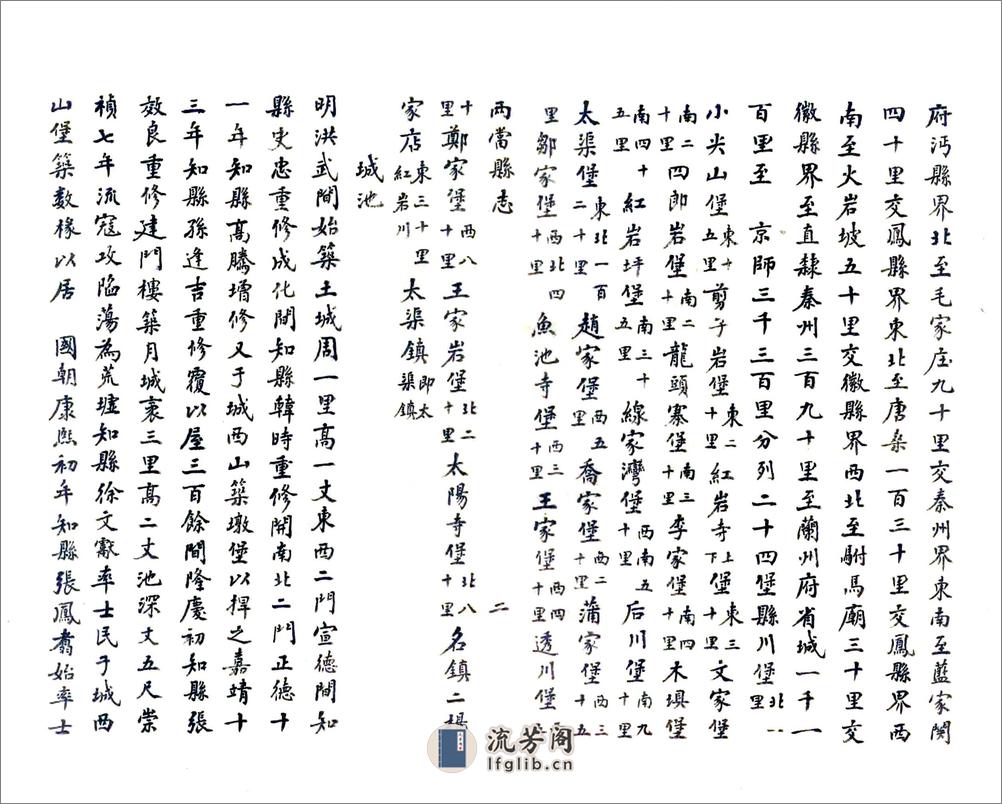 府沔縣界北至毛家庄九十里交秦州界東南至藍家関
四十里交鳳縣界東北至唐桑一百三十里交鳳縣界西
南至火岩坡五十里交徽縣界西北至駙馬廟三十里交
徽縣界至直隸秦州三百九十里至蘭州府省城一千一
百里至　京師三千三百里分列二十四堡縣川堡北一里
小尖山堡東十五里剪子岩堡東二十里紅岩寺上下堡東三十里文家堡
南二十里四郎岩堡南二十里龍頭寨堡南三十里李家堡南四十里木埧堡
南四十五里紅岩坪堡南三十五里線家灣堡西南五十里后川堡南九十里
太渠堡東北一百二十里趙家堡西五里喬家堡西二十里蒲家堡西三十五
里鄒家堡西北四十里魚池寺堡西三十里王家堡西四十里透川堡
兩當縣志　二
十里鄭家堡西八十里王家岩堡北二十里太陽寺堡北八十里名鎮二楊
家店東三十里紅岩川太渠鎮即太渠鎮
城池
明洪武間始築土城周一里高一丈東西二門宣德間知
縣史忠重修成化間知縣韓時重修開南北二門正德十
一年知縣高騰增修又于城西山築墩堡以捍之嘉靖十
三年知縣孫逢吉重修覆以屋三百餘間隆慶初知縣張
效良重修建門樓築月城袤三里高二丈池深丈五尺崇
禎七年流寇攻陷蕩為荒墟知縣徐文獻率士民于城西
山堡築数椽以居　國朝康熙初年知縣張鳳翥始率士
流芳阁
lfglib.cn